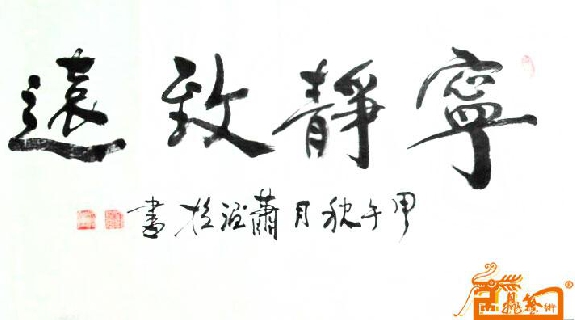 寧靜致遠
甲午秋月蕭書